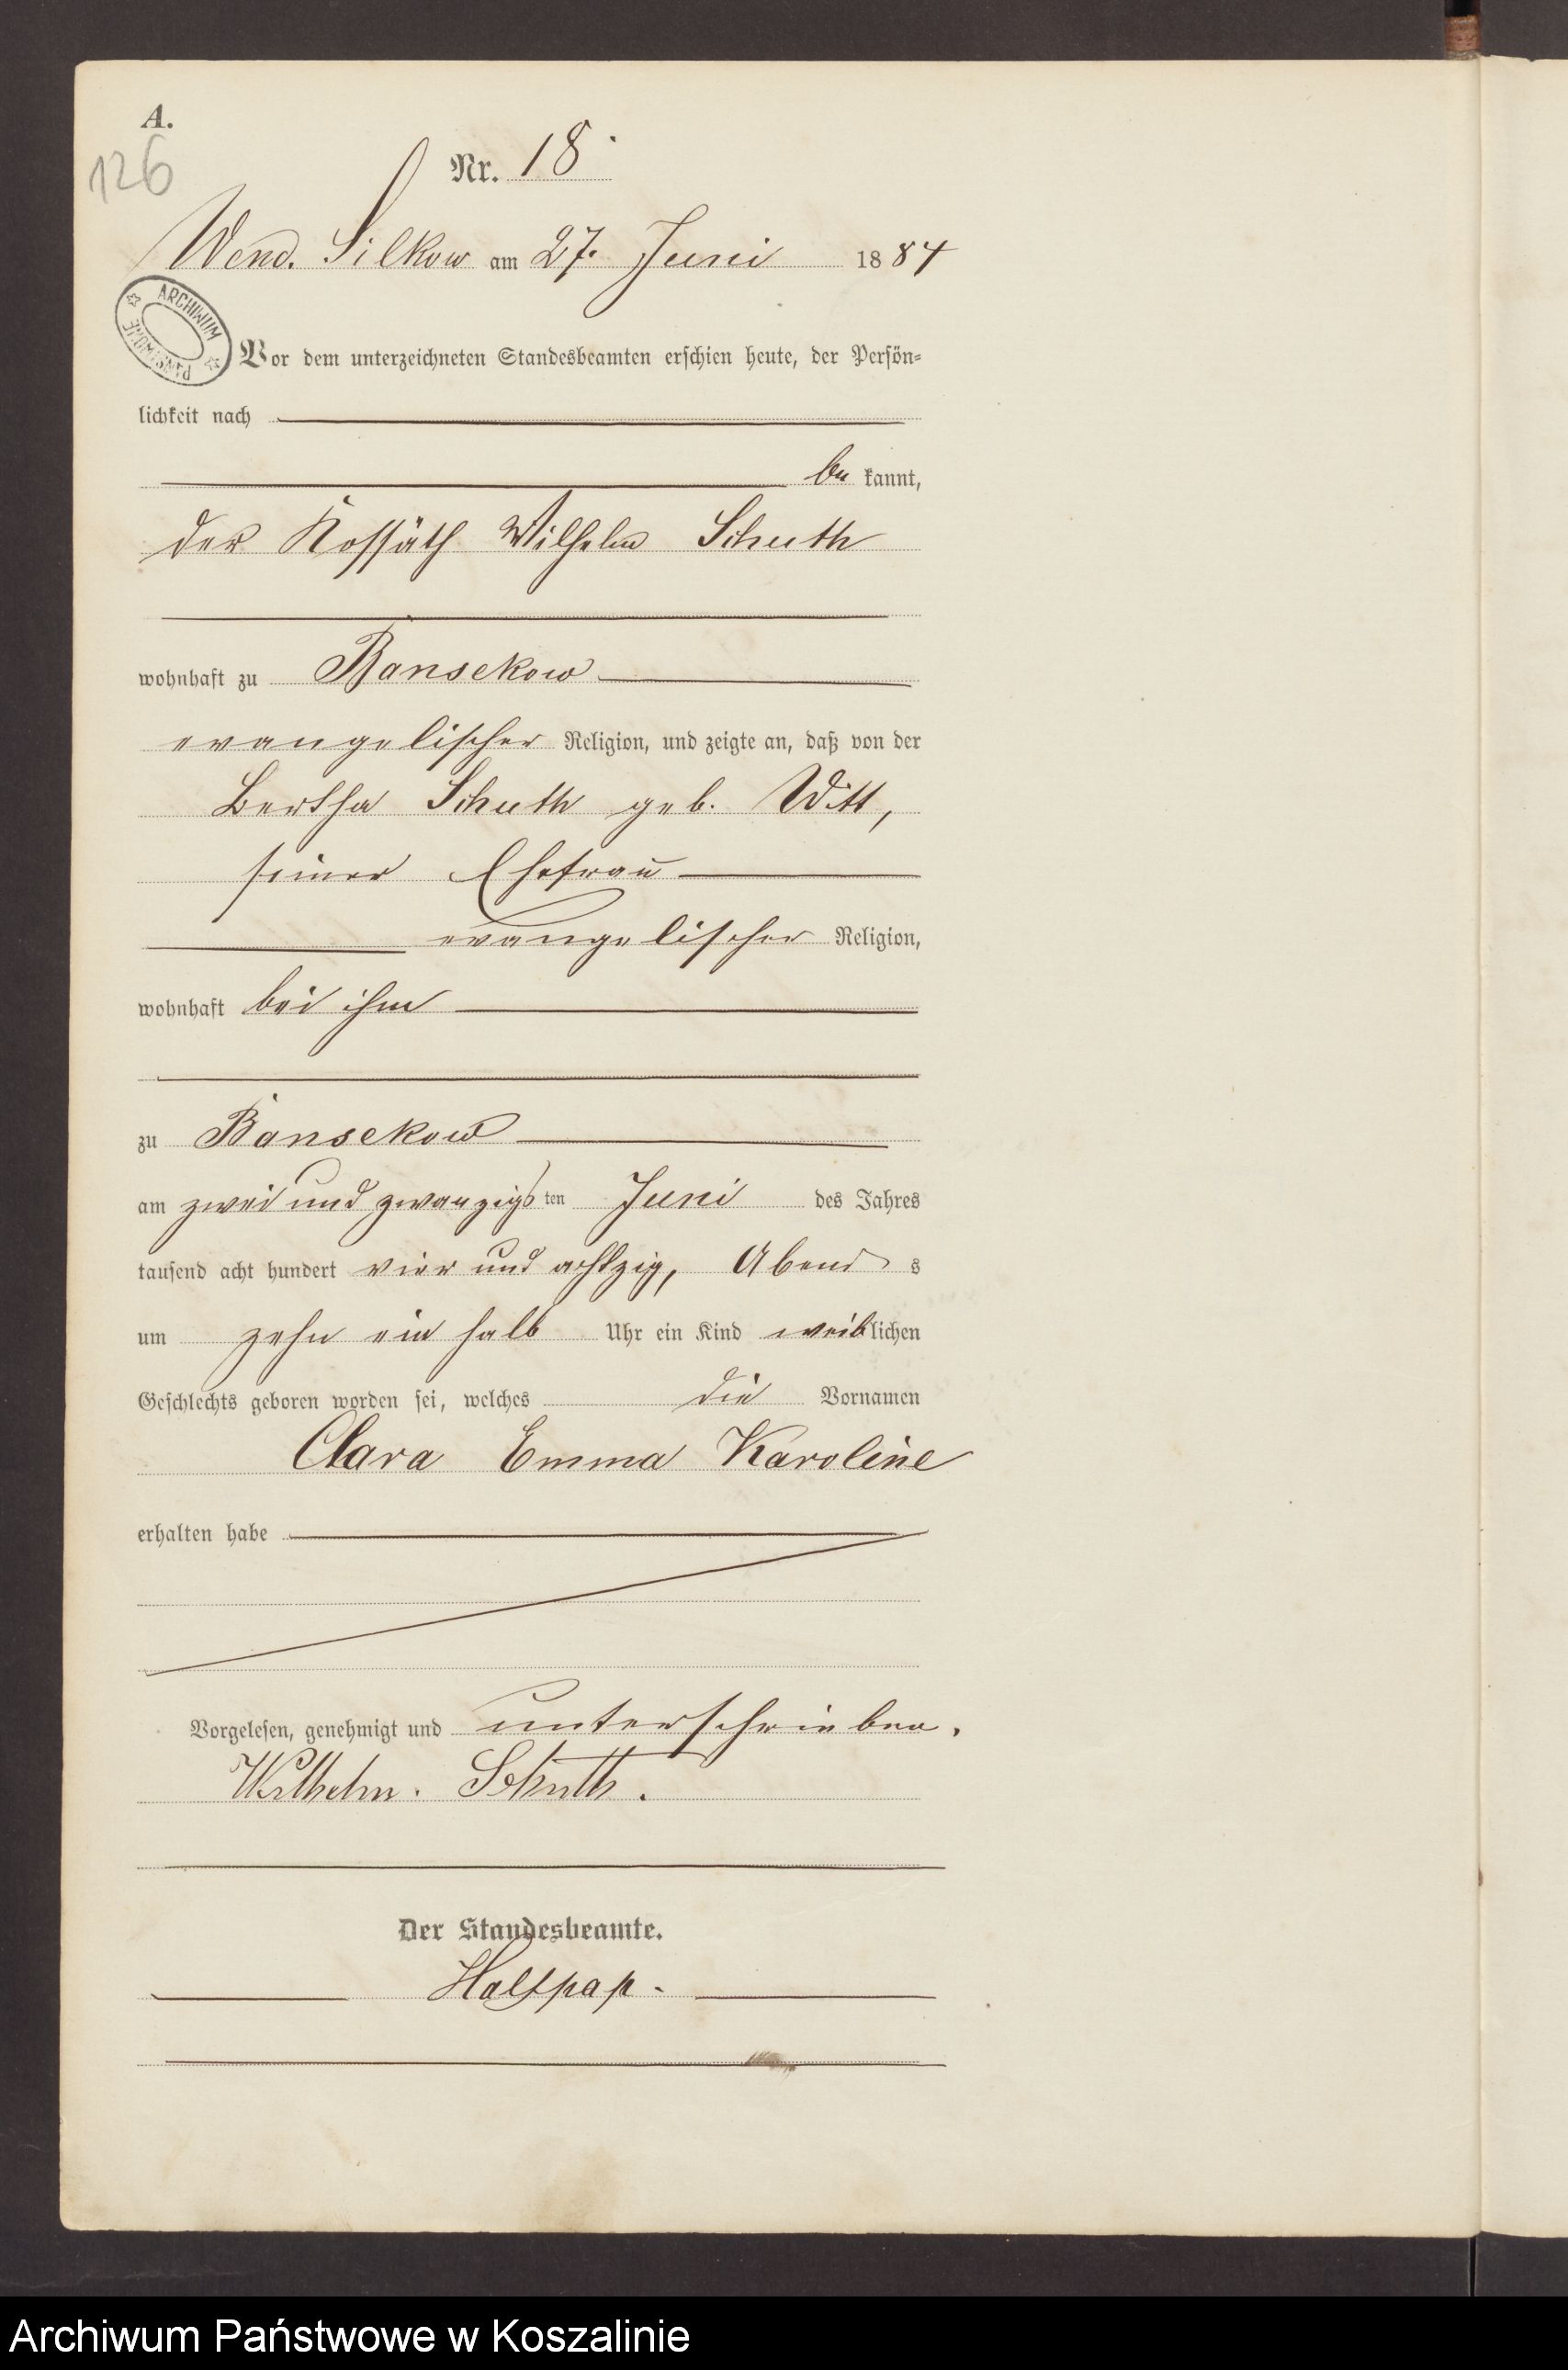 A.
126
Nr. 18
Wend. Silkow am 27. Juni 1884
ARCHIWUM PAŃSTWOWE
Vor dem unterzeichneten Standesbeamten erschien heute, der Persön-
lichkeit nach
be kannt,
der Kossäth Wilhelm Schuth
wohnhaft zu Bansekow
evangelischer Religion, und zeigte an, daß von der
Bertha Schuth geb. Witt,
seiner Ehefrau
evangelischer Religion,
wohnhaft bei ihm
zu Bansekow
am zwei und zwanzigsten Juni des Jahres
tausend acht hundert vier und achtzig, Abend s
um zehn ein halb Uhr ein Kind weiblichen
Geschlechts geboren worden sei, welches die Vornamen
Clara Emma Karoline
erhalten habe
Vorgelesen, genehmigt und unterschrieben.
Wilhelm. Schuth.
Der Standesbeamte.
Halfpap.
Archiwum Państwowe w Koszalinie